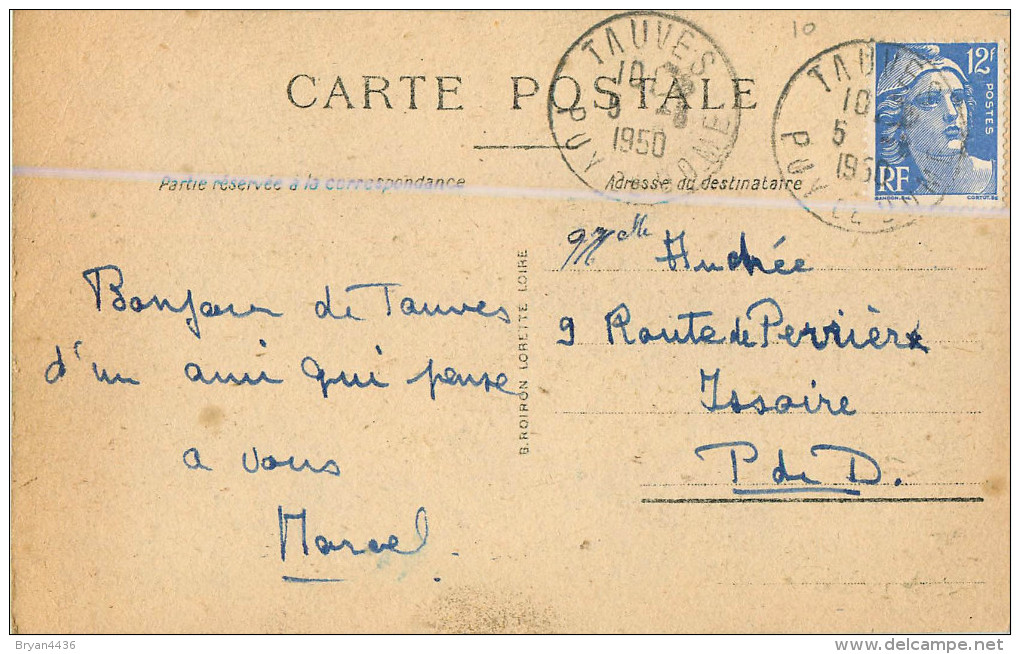 CARTE POSTALE
Partie réservée à la correspondance
Adresse du destinataire
TAUVES
10
5
1950
PUY DE DOME
TAUVES
10
5
1950
PUY DE DOME
10
12F
POSTES
RF
GANDON.DEL
CORTOT.SC
Bonjour de Tauves
d'un ami qui pense
a vous
Marcel.
B.ROIRON LORETTE LOIRE
Mlle Andrée
9 Route de Perrière
Issoire
P de D.
Bryan4436
delcampe.net